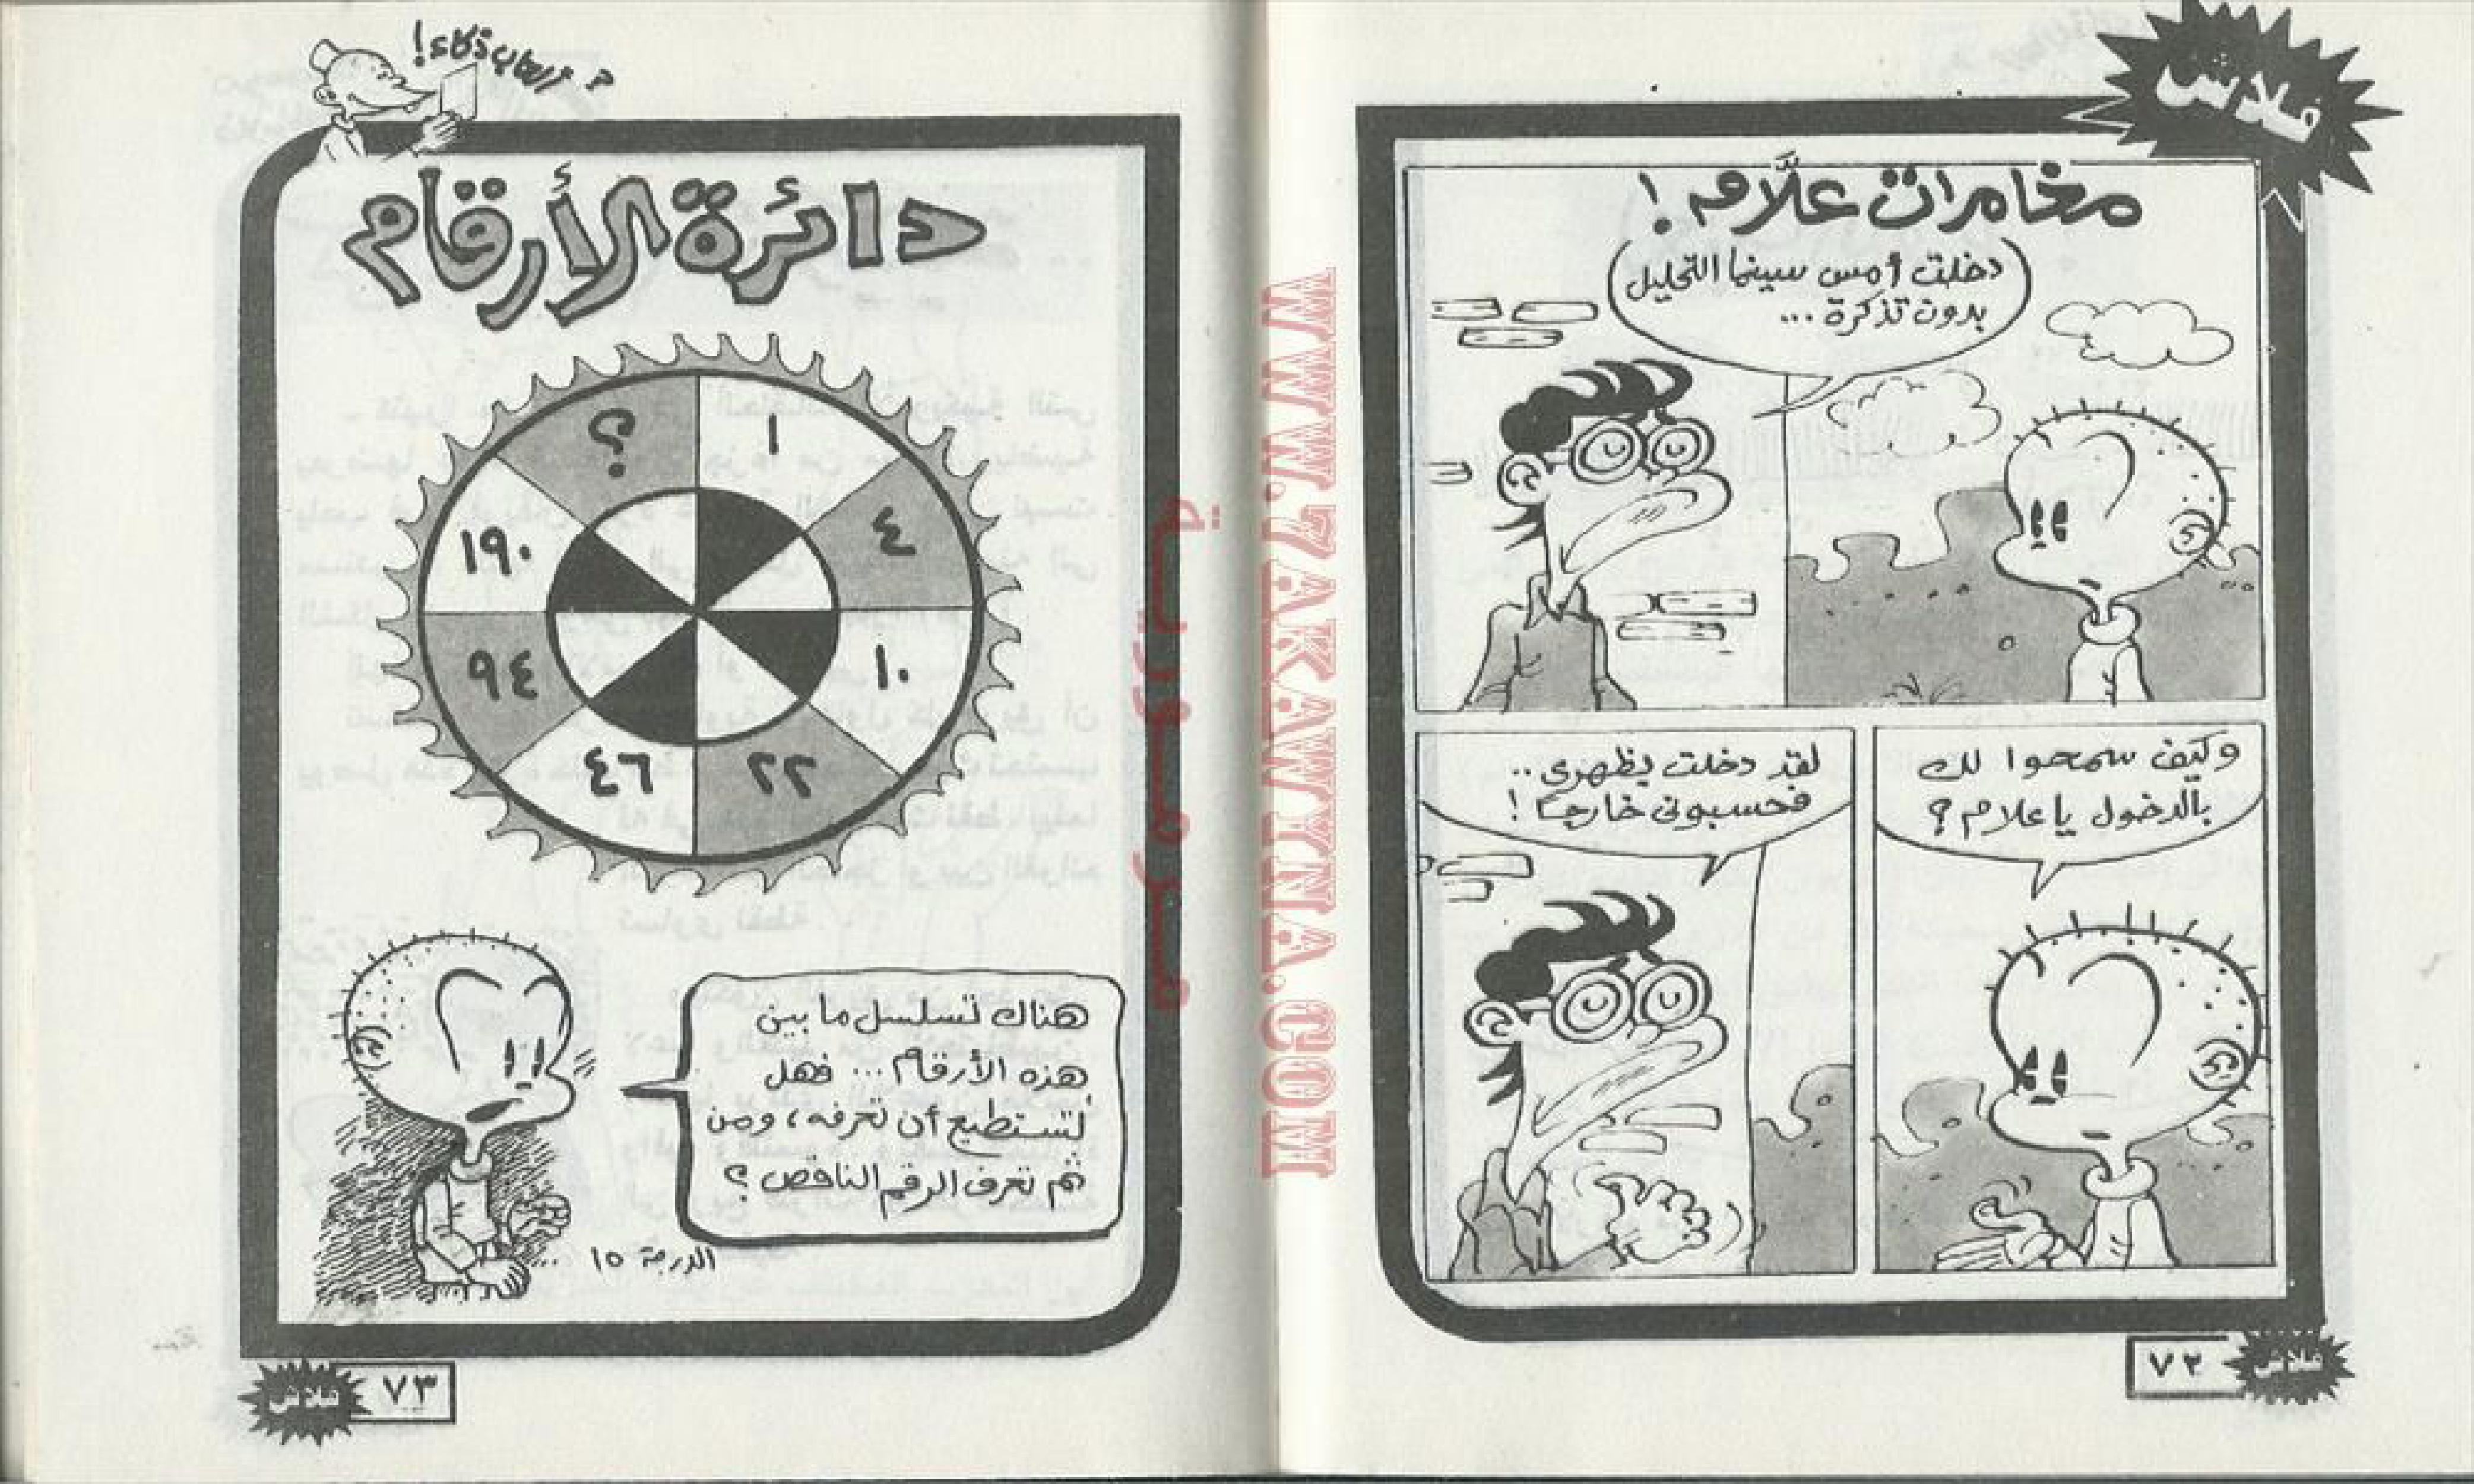 فلاش
مغامرات علّام!
دخلت أمس سينما التحليل
بدون تذكرة ...
وكيف سمحوا لك
بالدخول يا علام؟
لقد دخلت بظهرى ..
فحسبونى خارجًا!
٧٢
فلاش
ألعاب ذكاء!
دائرة الأرقام
؟
١
٤
١٠
٢٢
٤٦
٩٤
١٩٠
هناك تسلسل ما بين
هذه الأرقام ... فهل
تستطيع أن تعرفه، ومن
ثم تعرف الرقم الناقص؟
الدرجة ١٥
٧٣
فلاش
WWW.7AKAWINA.COM